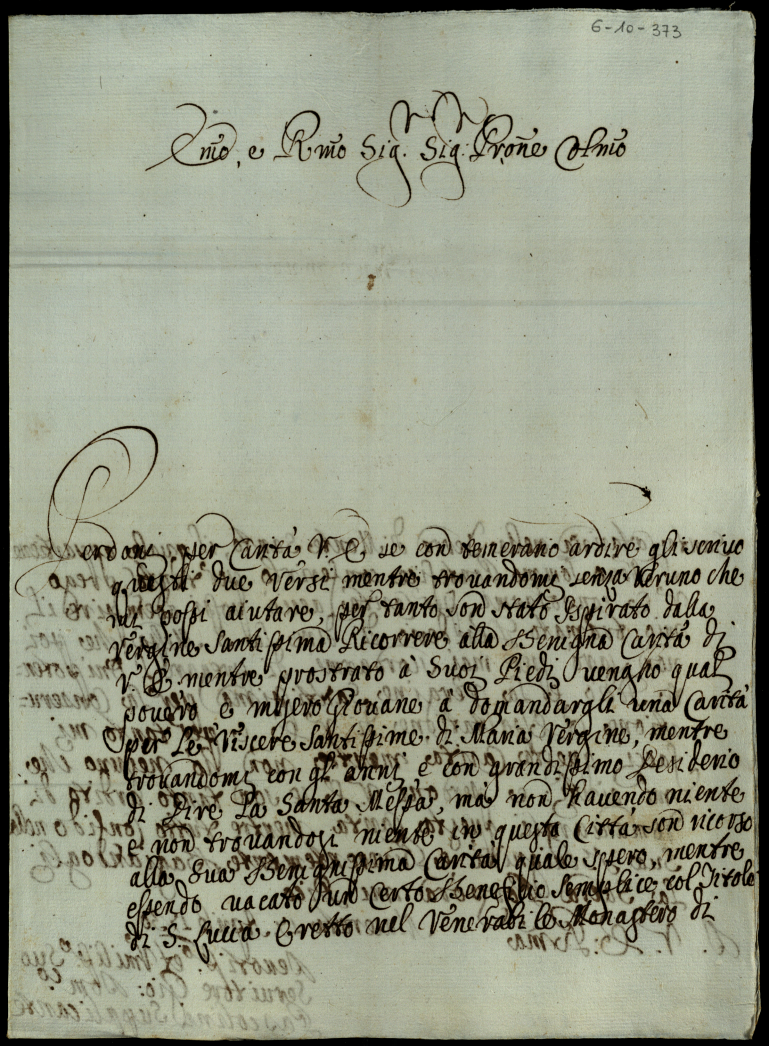 6-10-373
Emo, e Rmo Sig. Sig. Prone Colmo
Perdoni per Carità V. E. se con temerario ardire gli scrivo
questi due versi mentre trovandomi senza veruno che
mi possi aiutare, per tanto son stato Ispirato dalla
Vergine Santissima Ricorrere alla Benigna Carità di
V. E. mentre prostrato à Suoi Piedi vengho qual
povero e misero Giovane à domandargli una Carità
per Le Viscere Santissime di Maria Vergine, mentre
trovandomi con gl'anni, e con grandissimo Desiderio
di Dire La Santa Messa, ma non havendo niente
e non trovandosi niente in questa Città son ricorso
alla Sua Benignissima Carità quale spero, mentre
essendo vacato un certo Benefitio Semplice col Titolo
di S. Lucia Eretto nel Venerabile Monastero di